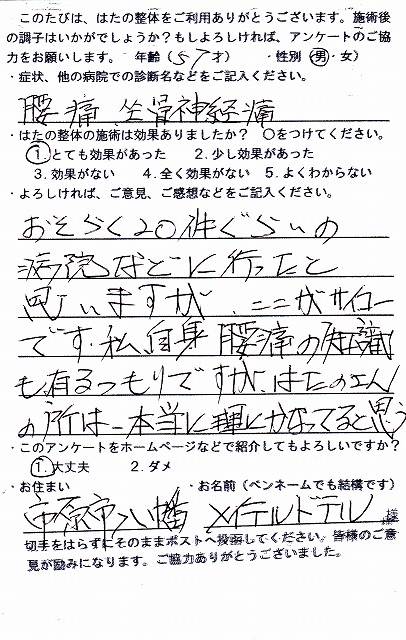 このたびは、はたの整体をご利用ありがとうございます。施術後
の調子はいかがでしょうか？もしよろしければ、アンケートのご協
力をお願いします。 年齢（５７才） ・性別（男・女）
・症状、他の病院での診断名などをご記入ください。
腰痛 坐骨神経痛
・はたの整体の施術は効果ありましたか？ ○をつけてください。
1．とても効果があった 2．少し効果があった
3．効果がない 4．全く効果がない 5．よくわからない
・よろしければ、ご意見、ご感想などをご記入ください。
おそらく20件ぐらいの
病院などに行ったと
思いますが、ここがサイコー
です。私自身腰痛の知識
も有るつもりですが、はたのさん
の所は本当に理にかなってると思う
・このアンケートをホームページなどで紹介してもよろしいですか？
1．大丈夫 2．ダメ
・お住まい ・お名前（ペンネームでも結構です）
市原市八幡 メイテルドテル 様
切手をはらずにそのままポストへ投函してください。皆様のご意
見が励みになります。ご協力ありがとうございました。